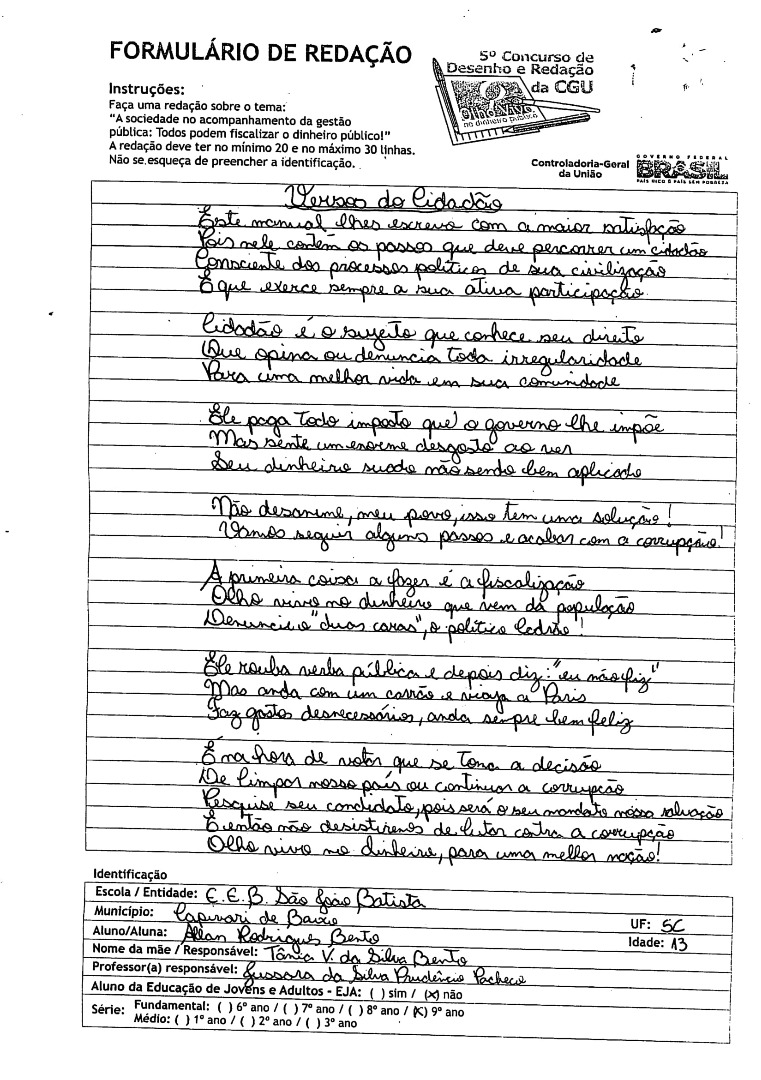 FORMULÁRIO DE REDAÇÃO
5º Concurso de
Desenho e Redação
da CGU
Olho Vivo
no dinheiro público
Instruções:
Faça uma redação sobre o tema:
"A sociedade no acompanhamento da gestão
pública: Todos podem fiscalizar o dinheiro público!"
A redação deve ter no mínimo 20 e no máximo 30 linhas.
Não se esqueça de preencher a identificação.
Controladoria-Geral
da União
GOVERNO FEDERAL
BRASIL
PAÍS RICO É PAÍS SEM POBREZA
Versos do Cidadão
Este manual lhes escrevo com a maior satisfação
Pois nele contêm os passos que deve percorrer um cidadão
Consciente dos processos políticos de sua civilização
E que exerce sempre a sua ativa participação.
Cidadão é o sujeito que conhece seu direito
Que opina ou denuncia toda irregularidade
Para uma melhor vida em sua comunidade
Ele paga todo imposto que o governo lhe impõe
Mas sente um enorme desgosto ao ver
Seu dinheiro suado não sendo bem aplicado
Não desanime, meu povo, isso tem uma solução!
Vamos seguir alguns passos e acabar com a corrupção!
A primeira coisa a fazer é a fiscalização
Olho vivo no dinheiro que vem da população
Denuncie o "duas caras", o político ladrão!
Ele rouba verba pública e depois diz: "eu não fiz"
Mas anda com um carrão e viaja a Paris
Faz gastos desnecessários, anda sempre bem feliz
É na hora de votar que se toma a decisão
De limpar nosso país ou continuar a corrupção
Pesquise seu candidato, pois será o seu mandato nossa salvação
E então não desistiremos de lutar contra a corrupção
Olho vivo no dinheiro, para uma melhor nação!
Identificação
Escola / Entidade: E.E.B. São João Batista
Município: Capivari de Baixo UF: SC
Aluno/Aluna: Allan Rodrigues Bento Idade: 13
Nome da mãe / Responsável: Tânia V. da Silva Bento
Professor(a) responsável: Jussara da Silva Prudêncio Pacheco
Aluno da Educação de Jovens e Adultos - EJA: ( ) sim / (x) não
Série: Fundamental: ( ) 6º ano / ( ) 7º ano / ( ) 8º ano / (x) 9º ano
Médio: ( ) 1º ano / ( ) 2º ano / ( ) 3º ano